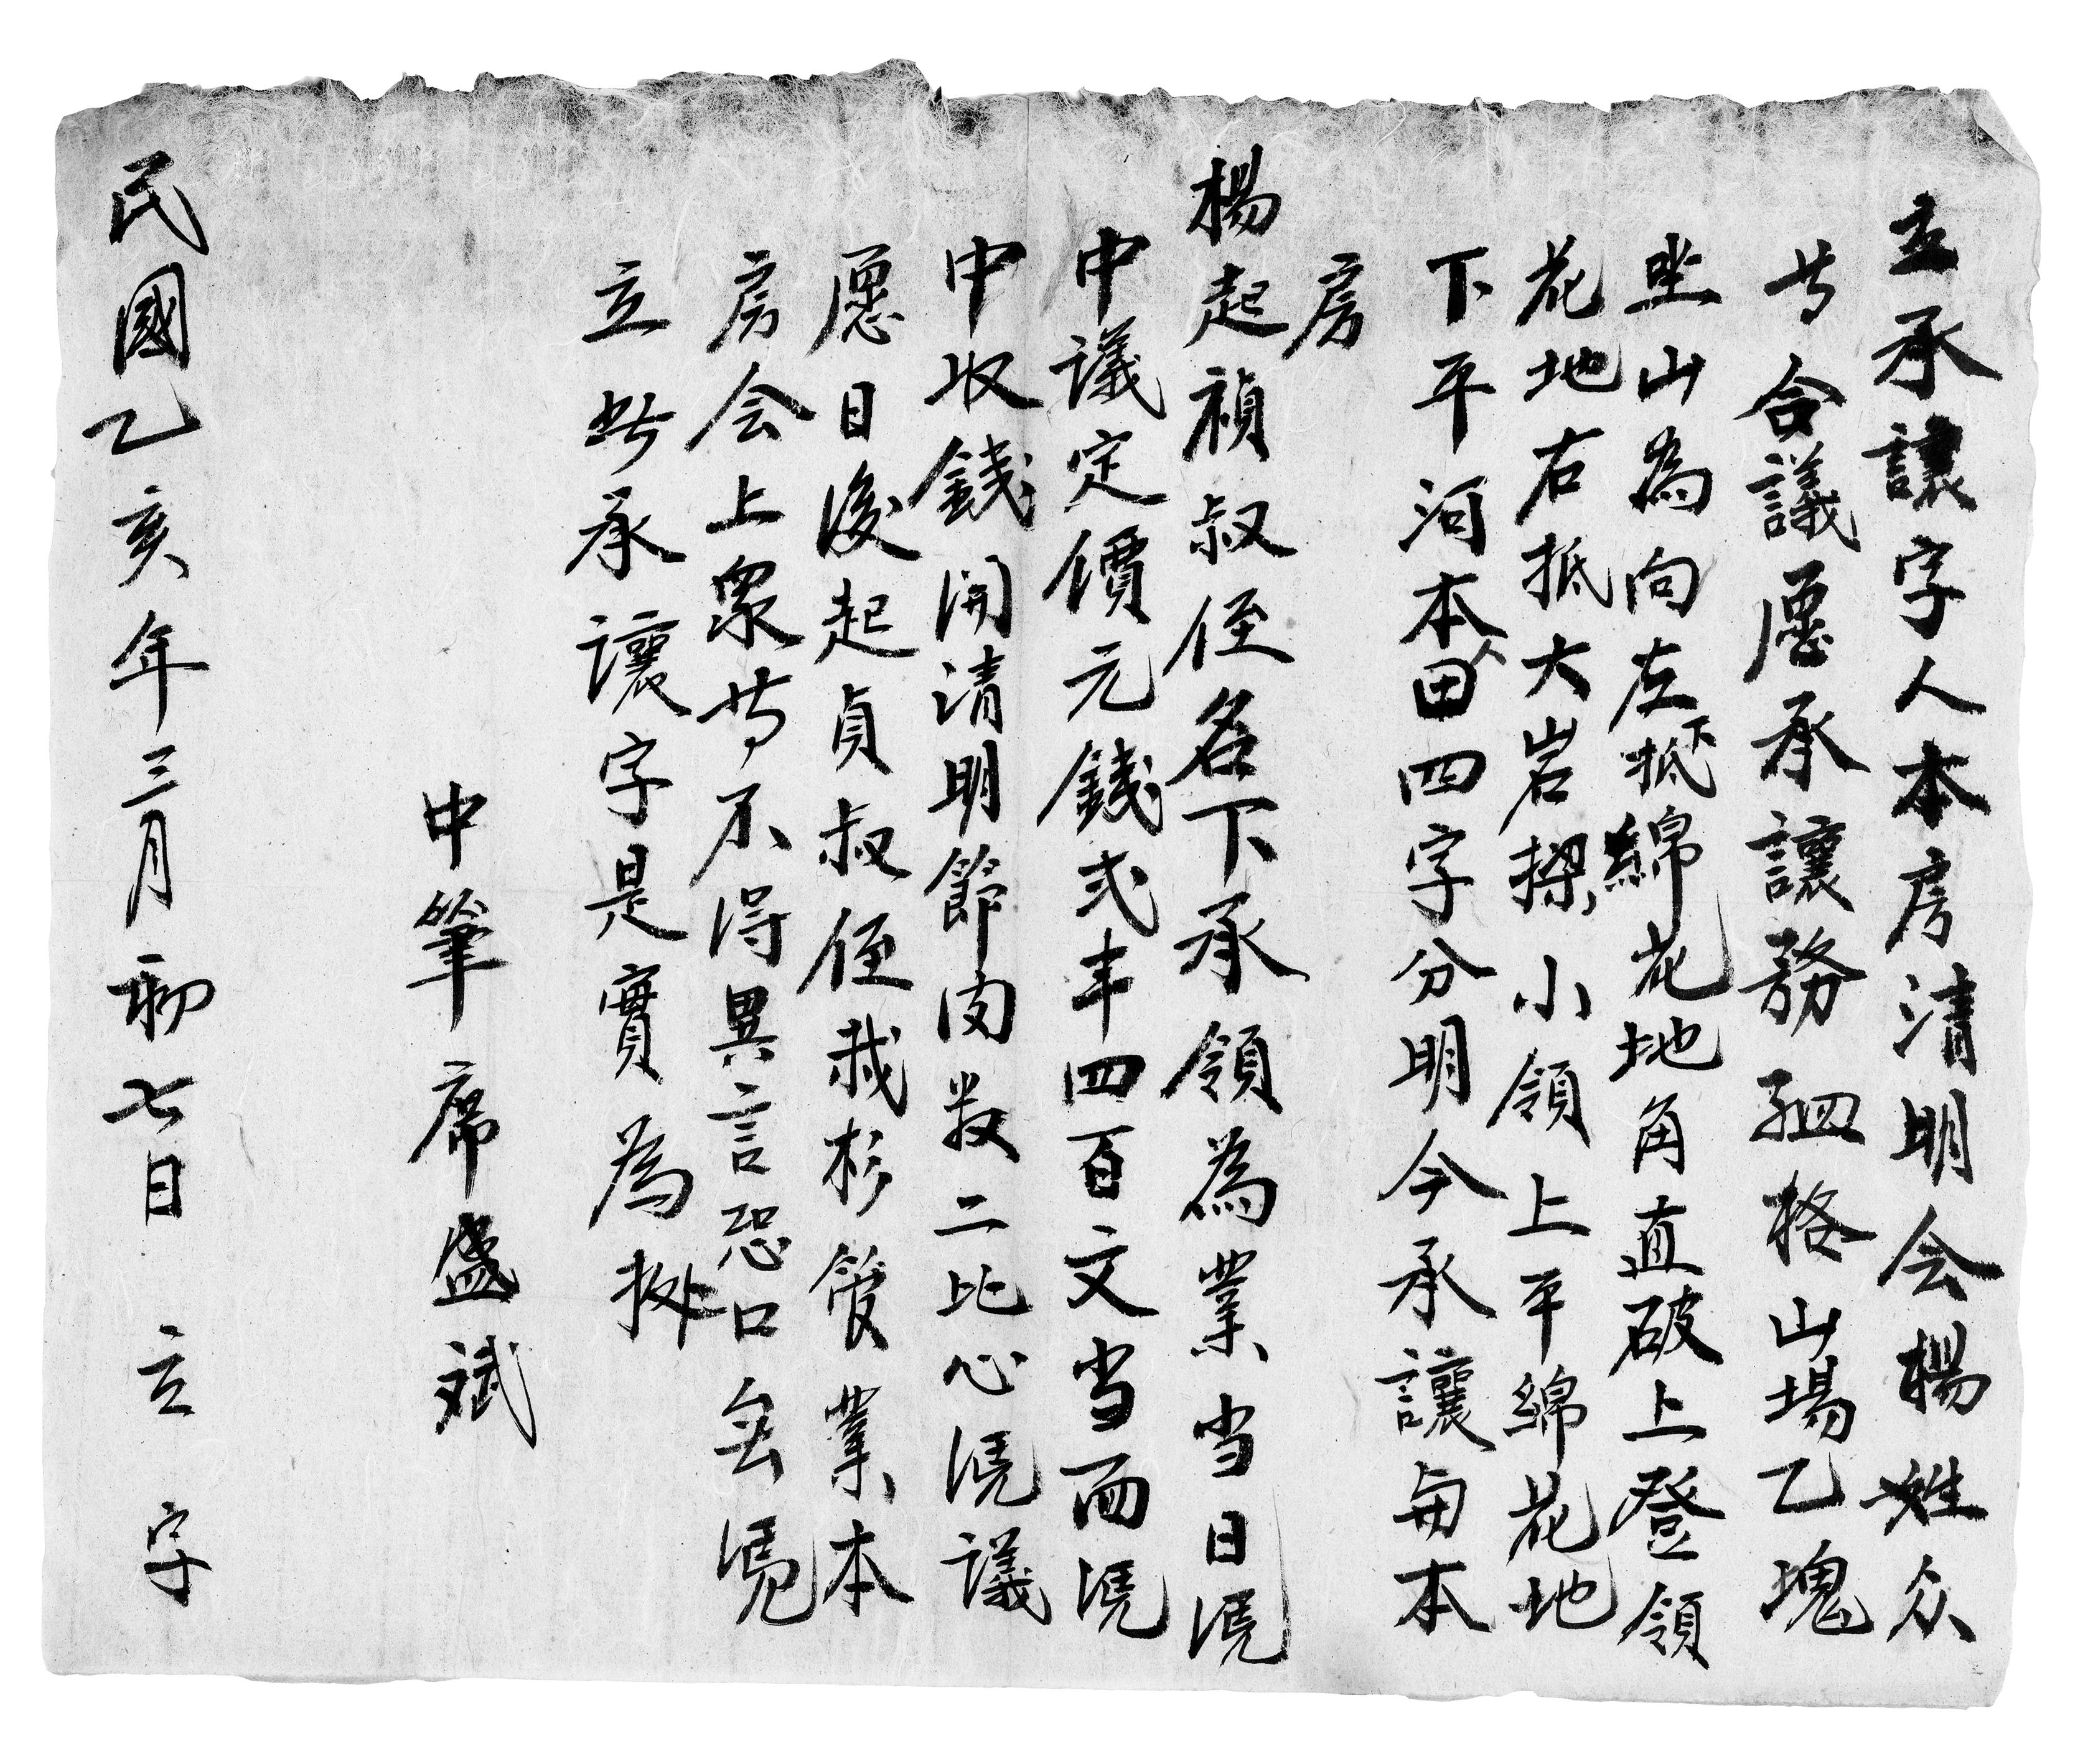 立承讓字人本房清明会楊姓众
等合議愿承讓務孤格山場乙塊
坐山為向左下抵綿花地角直破上登領
花地右抵大岩樑小領上平綿花地
下平河本田四字分明今承讓與本
房
楊起禎叔侄名下承領為業当日憑
中議定價元錢弍千四百文当面憑
中收錢開清明節肉数二比心憑議
愿日後起貞叔侄栽杉管業本
房会上衆等不得異言恐口無憑
立此承讓字是實為拠
中筆席盛斌
民國乙亥年三月初七日 立 字